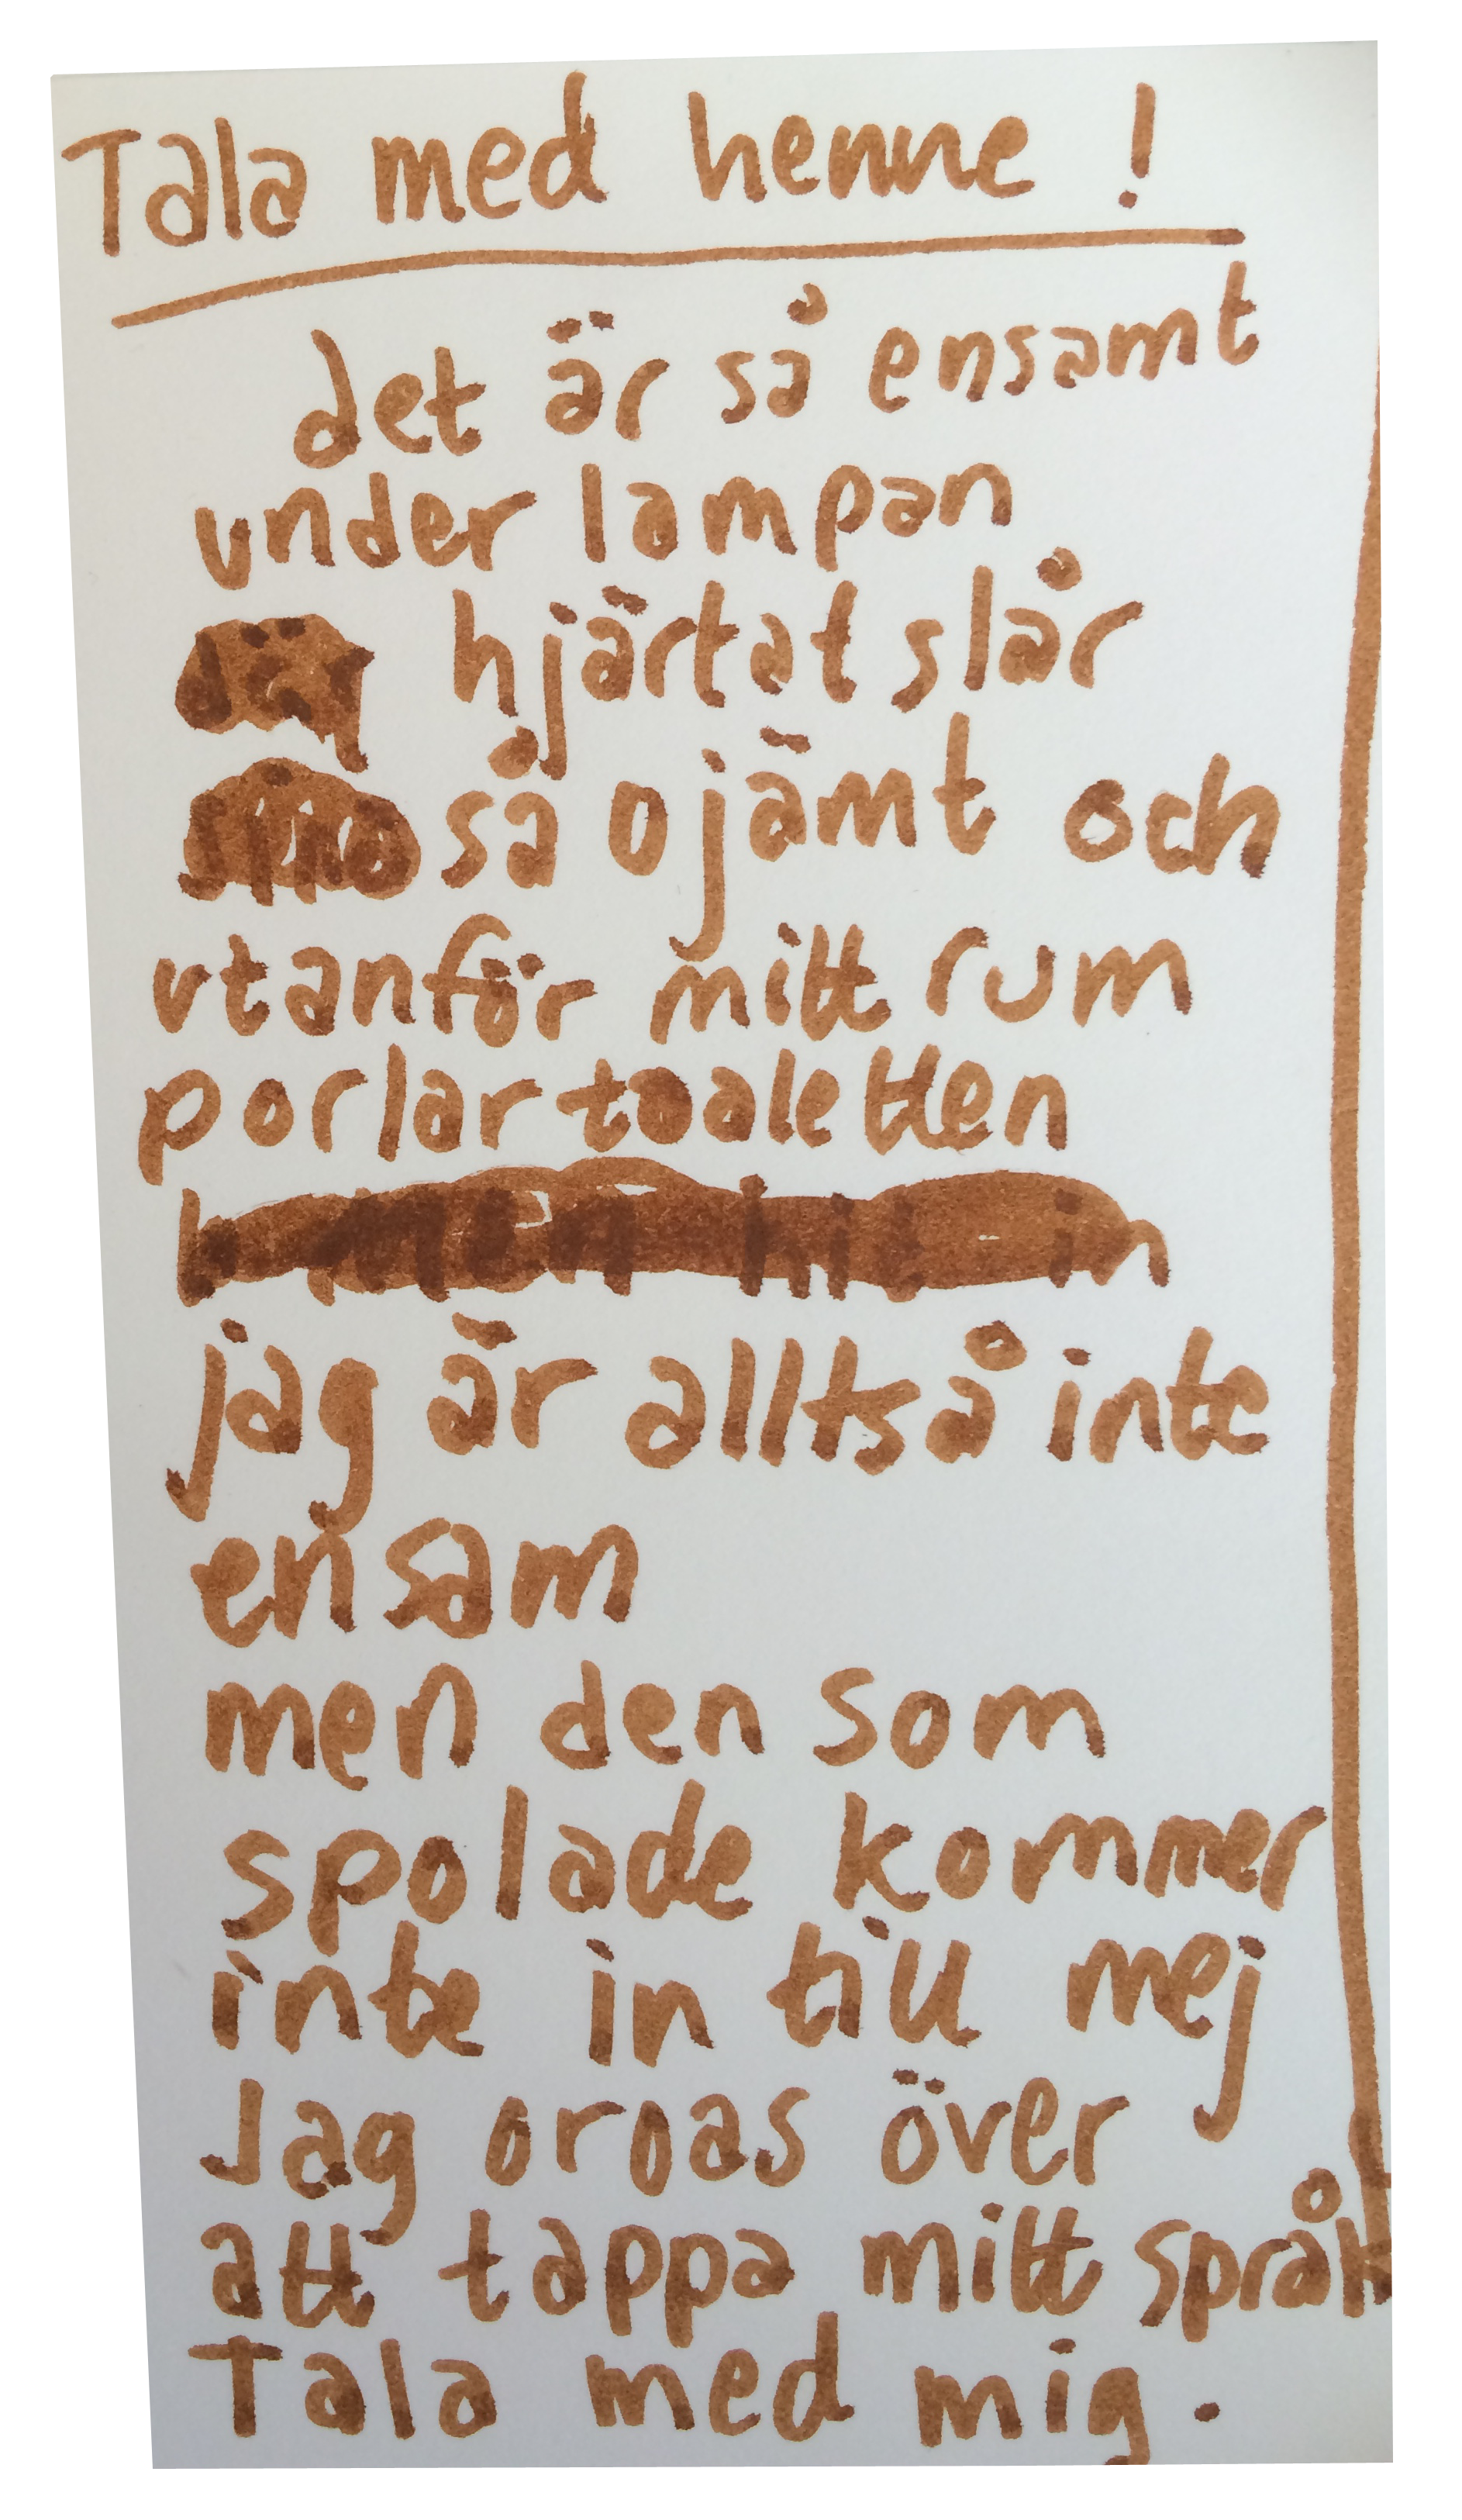 Tala med henne !
det är så ensamt
under lampan
hjärtat slår
så ojämt och
utanför mitt rum
porlar toaletten
jag är alltså inte
ensam
men den som
spolade kommer
inte in till mej
Jag oroas över
att tappa mitt språk
Tala med mig.